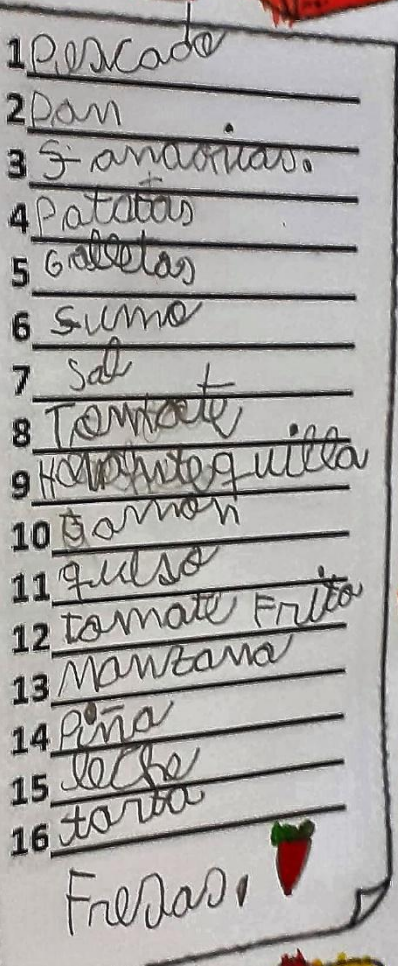 1 Pescado
2 Pan
3 Sanaorias.
4 Patatas
5 Galletas
6 Sumo
7 Sal
8 Tomate
9 Mantequilla
10 Gamon
11 queso
12 tomate Frito
13 Manzana
14 Piña
15 leche
16 tarta
Fresas.